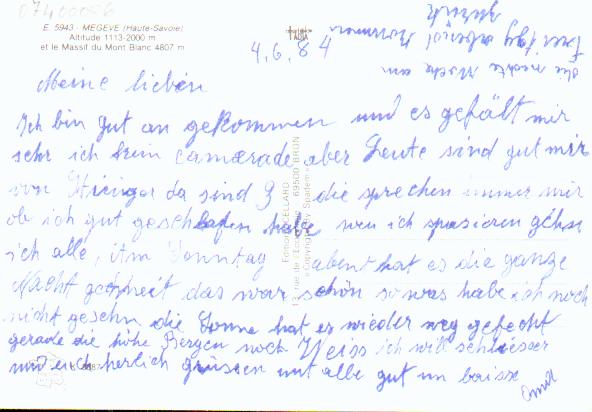 07400056
E. 5943 - MEGEVE (Haute-Savoie)
Altitude 1113-2000 m
et le Massif du Mont Blanc 4807 m
4.6.84
die nechte Woche am
Meine lieben
Ich bin gut an gekommen und es gefält mir
sehr ich kein camerade aber Leute sind gut mir
von da sind 9 die sprechen immer mir
ob ich gut geschlafen habe wen ich spasieren gehn
ich alle, Sonntag abent hat es die ganze
Nacht geschneit das war schön so was habe ich noch
nicht gesehn die Sonne hat es wieder weg gefecht
gerade die höhe Bergen noch Weiss ich will schliesser
und euch herlich grüssen unt alle gut un baise
Emil
Edmond
69500 BRON